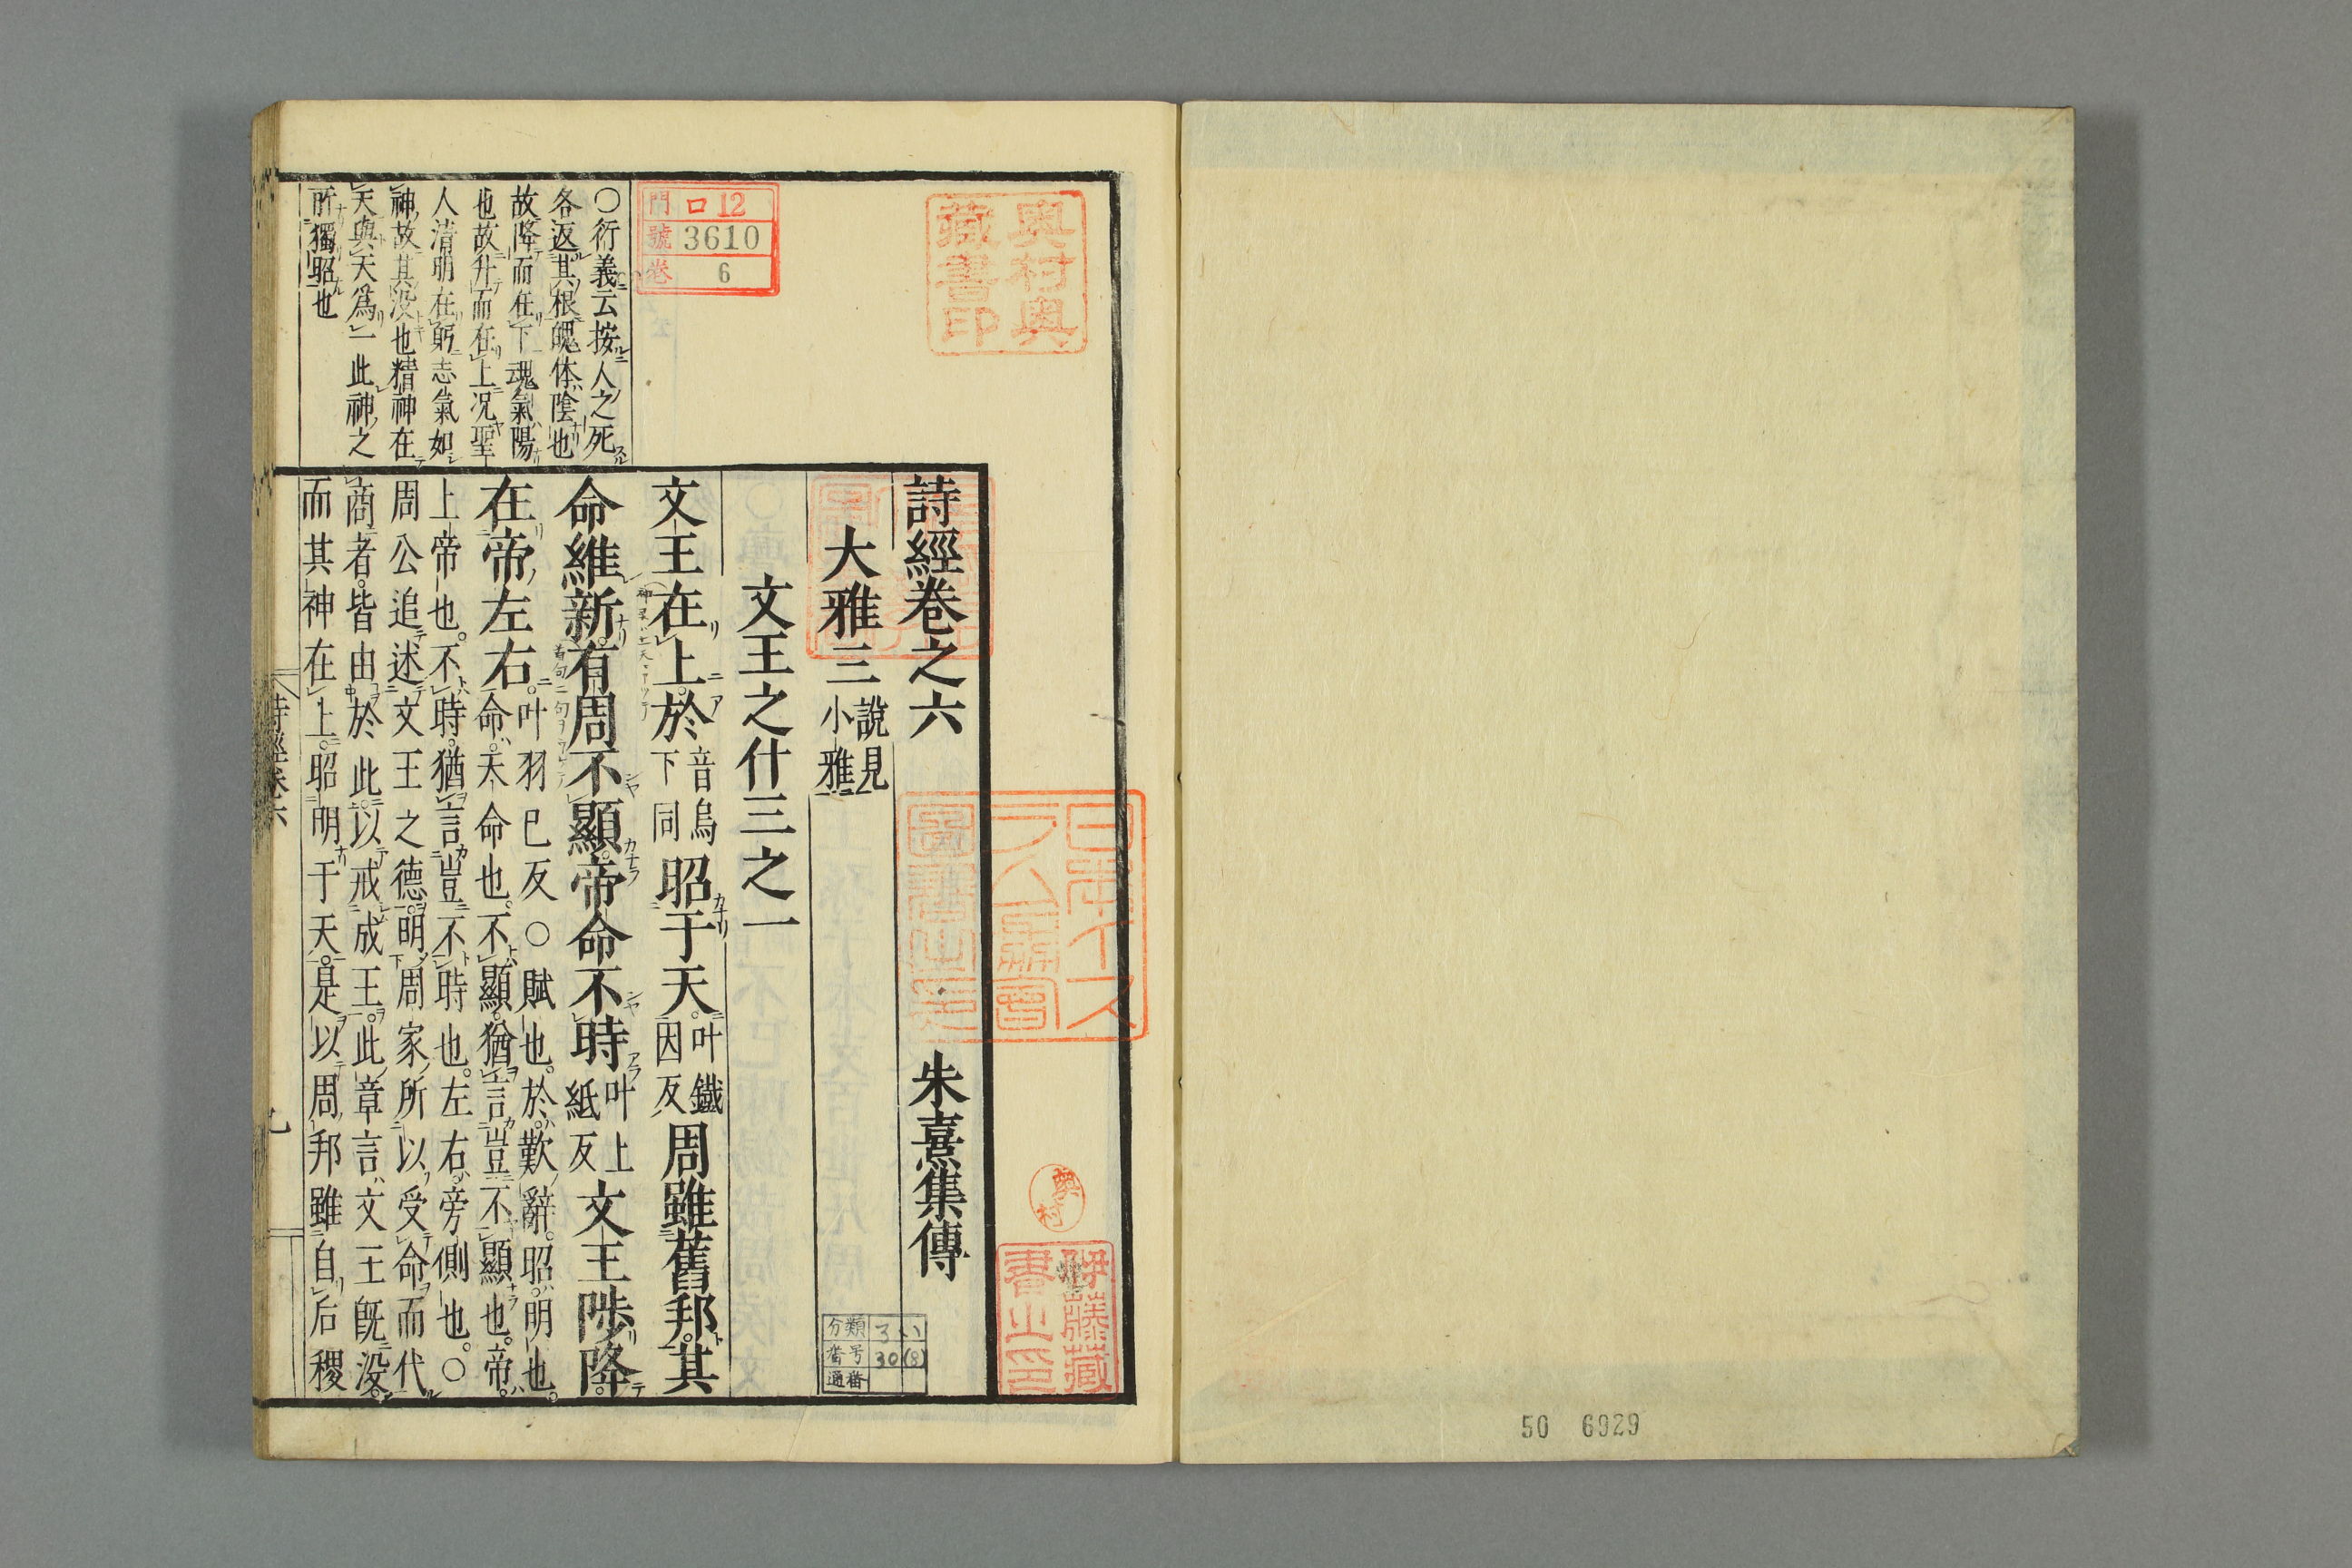 詩經卷之六 朱熹集傳
大雅三 說見小雅
文王之什三之一
文王在上。於 音烏下同 昭于天。叶鐵因反 周雖舊邦。其
命維新。有周不顯。帝命不時 叶上紙反 文王陟降。
在帝左右。叶羽已反○賦也。於。歎辭。昭。明也。
命。天命也。不顯。猶言豈不顯也。帝。
上帝也。不時。猶言豈不時也。左右。旁側也。○
周公追述文王之德。明周家所以受命而代
商者。皆由於此。以戒成王。此章言。文王既没。
而其神在上。昭明于天。是以周邦雖自后稷
○衍義云按人之死
各返其根魄体陰也
故降而在下魂氣陽
也故升而在上况聖
人清明在躬志氣如
神故其没也精神在
天與天爲一此神之
所獨昭也
詩經卷六
門 口12
號 3610
卷 6
奧村奧
藏書印
日本イス
ラム協會
圖書之記
奧村
伊藤藏
書之印
分類
番号 30(8)
通番
50 6929